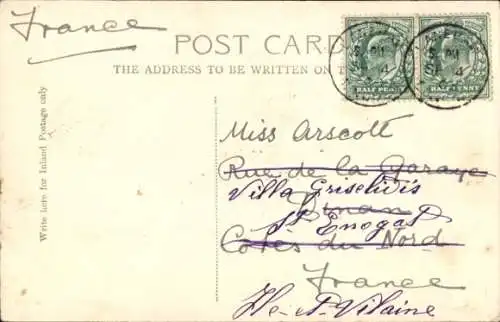 France
POST CARD
THE ADDRESS TO BE WRITTEN ON T
HALF PENNY
HALF PENNY
Write here for Inland Postage only
Miss Arscott
Rue de la Garaye
Villa Griselidis
Dinan
St Enogat
Côtes du Nord
France
Ile et Vilaine